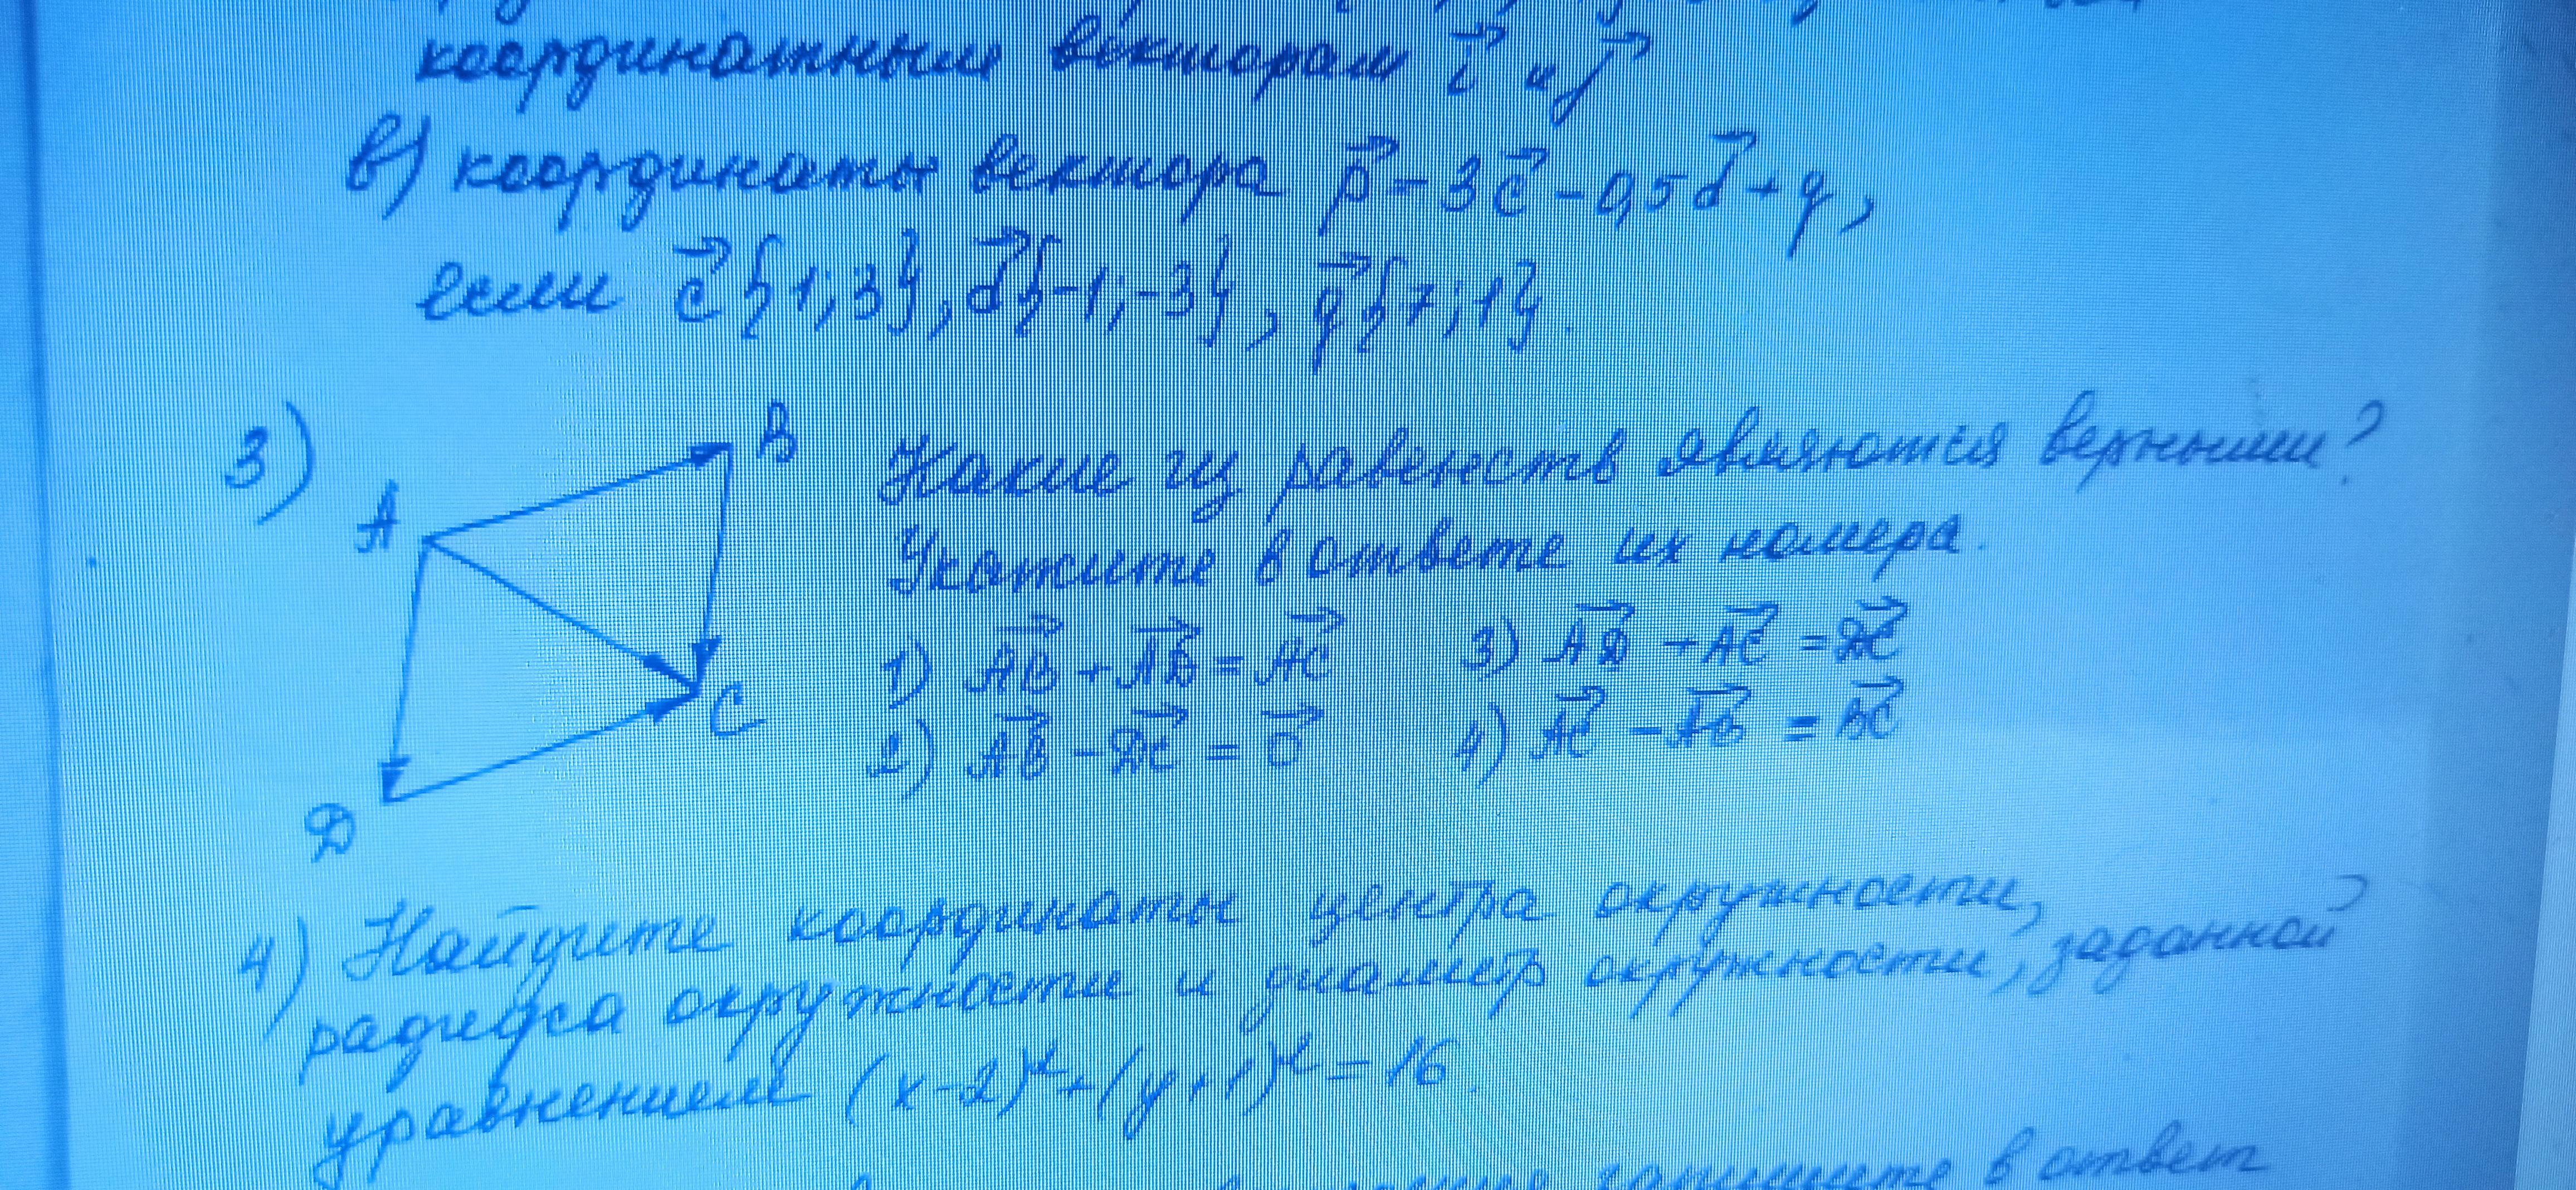 координатным векторам i⃗ и j⃗
в) координаты вектора p⃗ = 3c⃗ - 0,5d⃗ + q,
если c⃗{1; 3}, d⃗{-1; -3}, q⃗{7; 1}.
3) A B C D
Какие из равенств являются верными?
Укажите в ответе их номера.
1) AB⃗ + AD⃗ = AC⃗ 3) AD⃗ - AC⃗ = DC⃗
2) AB⃗ - DC⃗ = 0⃗ 4) AC⃗ - AB⃗ = BC⃗
4) Найдите координаты центра окружности,
радиуса окружности и диаметр окружности, заданной
уравнением (x-2)² + (y+1)² = 16.
в ответ